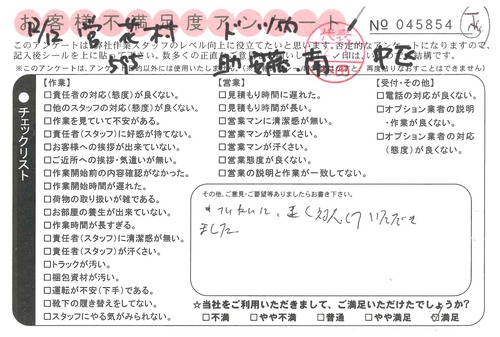 お客様不満足度アンケート
№ 045854
このアンケートは弊社作業スタッフのレベル向上に役立てたいと思います。否定的なアンケートになりますので、
記入後シールを上に貼って下さい。
※このアンケートは、
【作業】
□責任者の対応(態度)が良くない。
□他のスタッフの対応(態度)が良くない。
□作業を見ていて不安がある。
□責任者(スタッフ)に好感が持てない。
□お客様への挨拶が出来ていない。
□ご近所への挨拶・気遣いが無い。
□作業開始前の内容確認がなかった。
□作業開始時間が遅れた。
□荷物の取り扱いが雑である。
□お部屋の養生が出来ていない。
□作業時間が長すぎる。
□責任者(スタッフ)に清潔感が無い。
□責任者(スタッフ)が汗くさい。
□トラックが汚い。
□梱包資材が汚い。
□運転が不安(下手)である。
□靴下の履き替えをしてない。
□スタッフにやる気がみられない。
【営業】
□見積もり時間に遅れた。
□見積もり時間が長い。
□営業マンに清潔感が無い。
□営業マンが煙草くさい。
□営業マンが汗くさい。
□営業態度が良くない。
□営業の説明と作業が一致してない。
【受付・その他】
□電話の対応が良くない。
□オプション業者の説明
・作業が良くない。
□オプション業者の対応
(態度)が良くない。
●チェックリスト
その他、ご意見・ご要望等ありましたらお書き下さい。
ました
☆当社をご利用いただきまして、ご満足いただけたでしょうか?
□不満 □やや不満 □普通 □やや満足 ☑満足